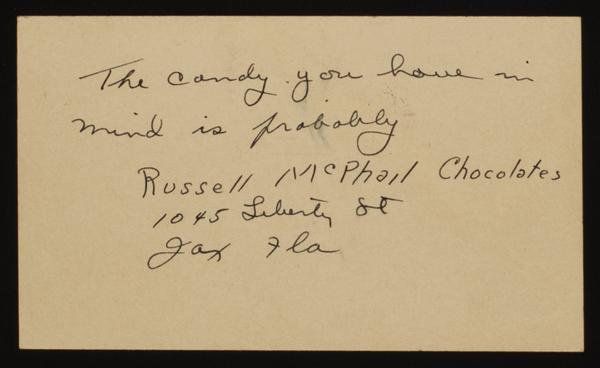 The candy you have in
mind is probably
Russell McPhail Chocolates
1045 Liberty St
Jax Fla